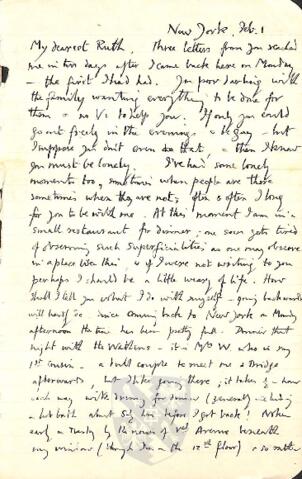 New York, Feb. 1
My dearest Ruth, Three letters from you reached
me in two days after I came back here on Monday
– the first I had had. You poor darling with
the family wanting everything to be done for
them & no Vi to help you. If only you could
go out freely in the evenings & be gay – but
I suppose you don't even do that & then I know
you must be lonely. I've had some lonely
moments too, sometimes when people are there
sometimes when they are not, & often & often I long
for you to be with me. At this moment I am in a
small restaurant for dinner; one soon gets tired
of observing such superficialities as one may observe
in a place like this & if I were not writing to you
perhaps I should be a little weary of life. How
shall I tell you what I do with myself – going backwards
will hardly do. Since coming back to New York on Monday
afternoon the time has been pretty full. Dinner that
night with the & it is Mrs W. who is my
1st cousin – a dull couple to meet me & Bridge
afterwards, but I like going there; it takes ½ hour
each way with driving for dinner (generally including
a hot bath about before I got back! Woken
early on Tuesday by the noises of Avenue beneath
my window (though I'm on the 12th floor) & no matter